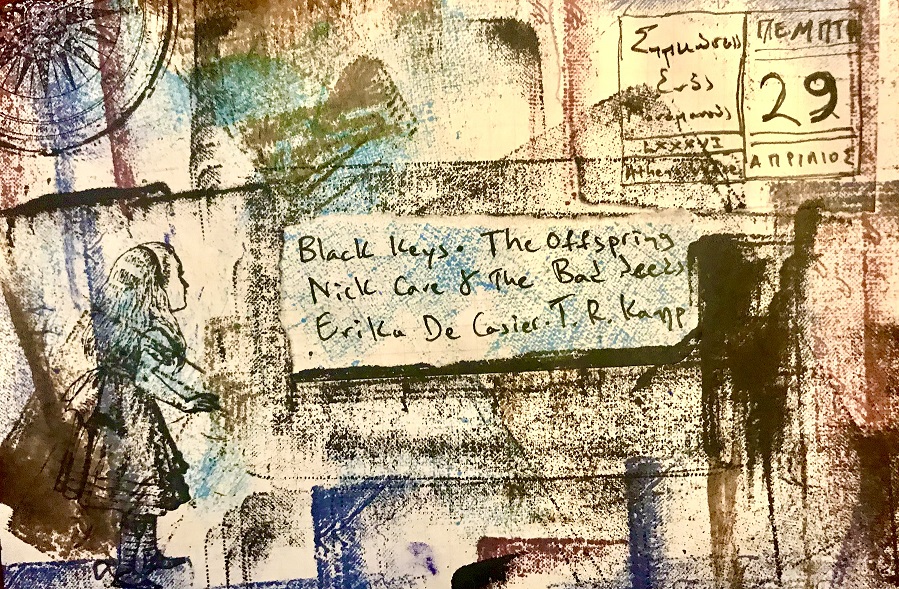 Σημειώσεις
Ενός
Μονόχνωτου
LXXXVI
Athens
ΠΕΜΠΤΗ
29
ΑΠΡΙΛΙΟΣ
Black Keys. The Offspring
Nick Cave & The Bad Seeds
Erika De Casier. T. R. Kamp